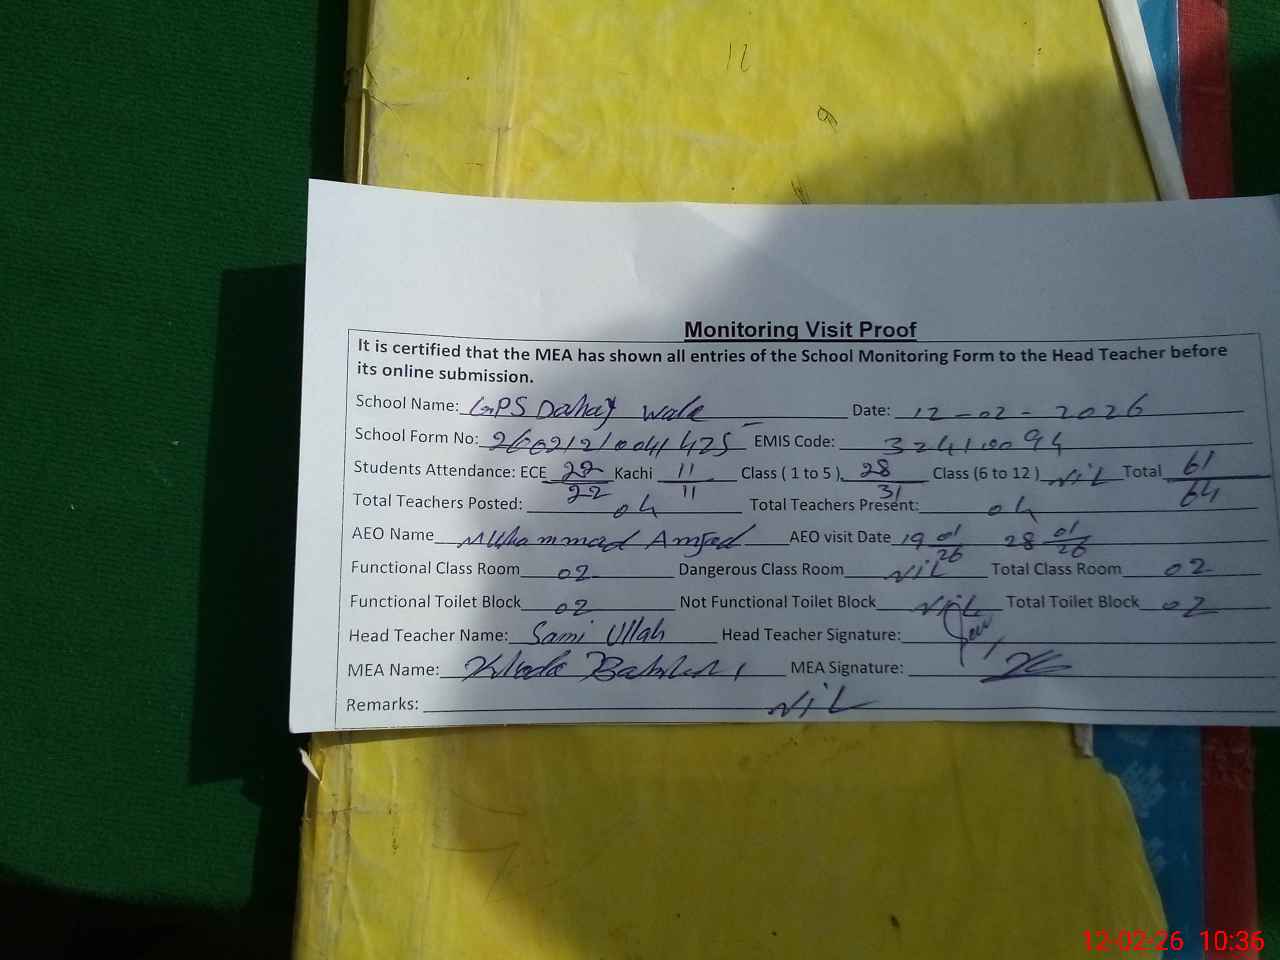 12
9
Monitoring Visit Proof
It is certified that the MEA has shown all entries of the School Monitoring Form to the Head Teacher before
its online submission.
School Name: GPS Dahay wala Date: 12-02-2026
School Form No: EMIS Code: 32410094
Students Attendance: ECE 22/22 Kachi 11/11 Class ( 1 to 5 ) 28/31 Class (6 to 12 ) NiL Total 61/64
Total Teachers Posted: 04 Total Teachers Present: 04
AEO Name Muhammad Amjad AEO visit Date 19 01/26 28 01/26
Functional Class Room 02 Dangerous Class Room NiL Total Class Room 02
Functional Toilet Block 02 Not Functional Toilet Block NiL Total Toilet Block 02
Head Teacher Name: Sami Ullah Head Teacher Signature:
MEA Name: Khuda Bakhsh MEA Signature:
Remarks: NiL
12-02-26 10:36